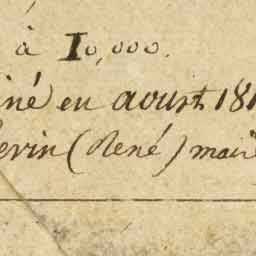 à 10,000.
iné en aoust 181
evin (René) mair